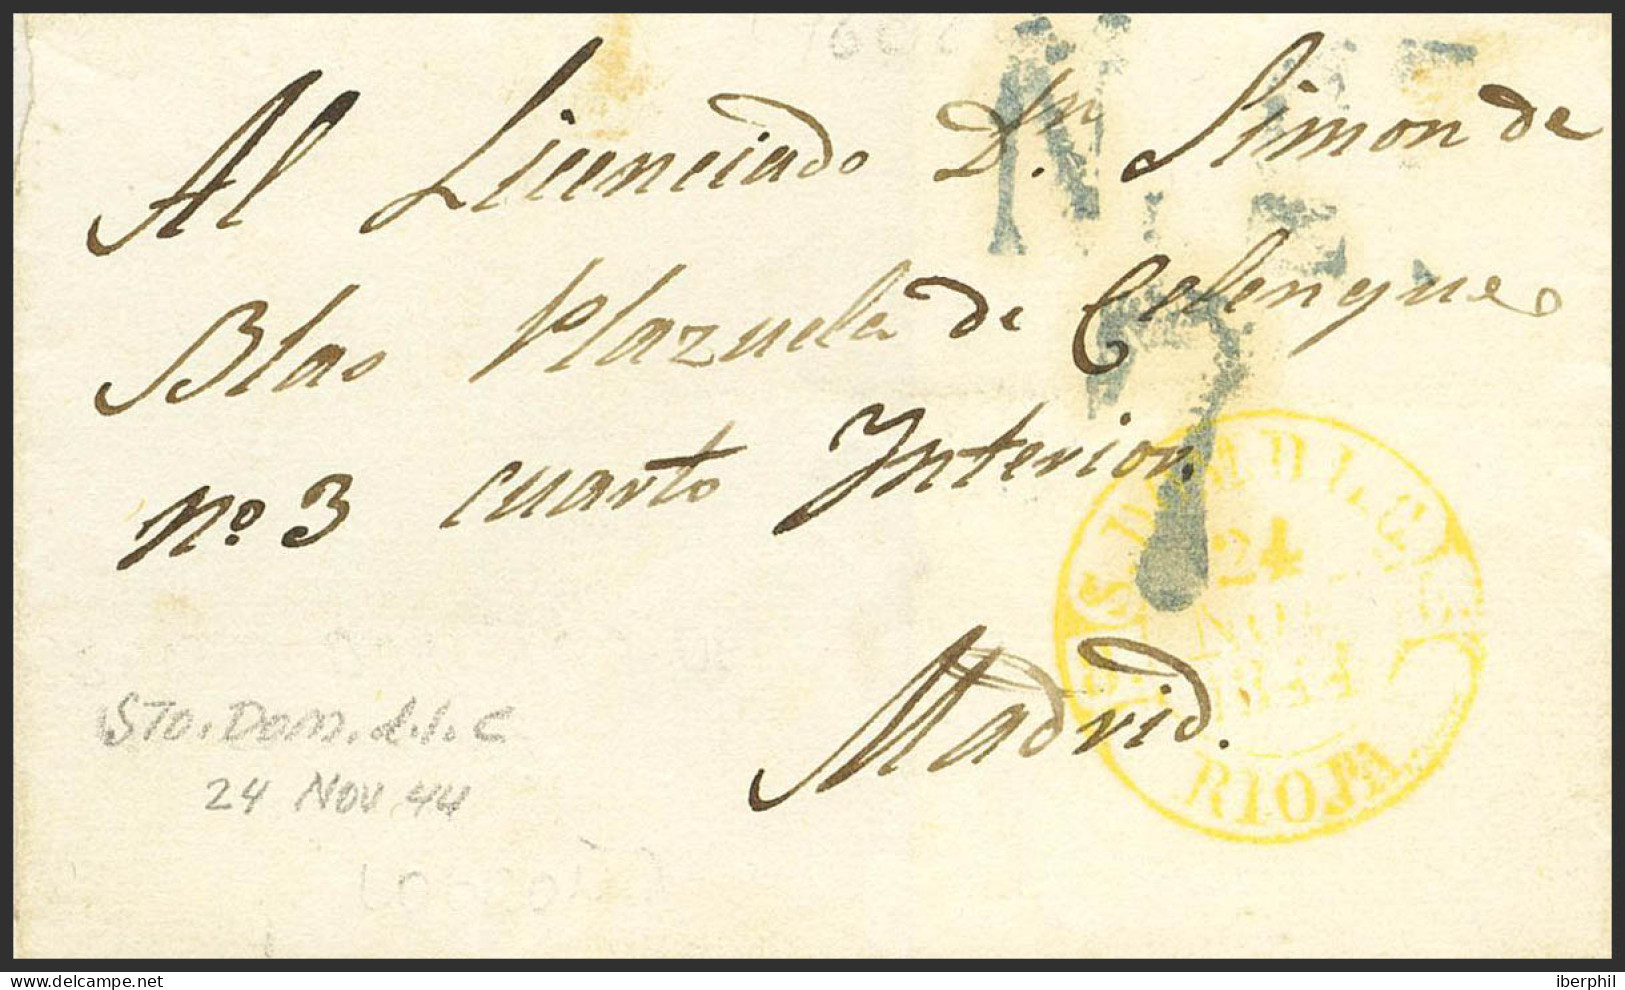 Al Licenciado Dn. Simon de
Blas Plazuela de Celenque
no. 3 cuarto Interior.
Madrid.
7
24
NOV
1844
RIOJA
STO. Dom. d.l.C
24 NOV 44
iberphil